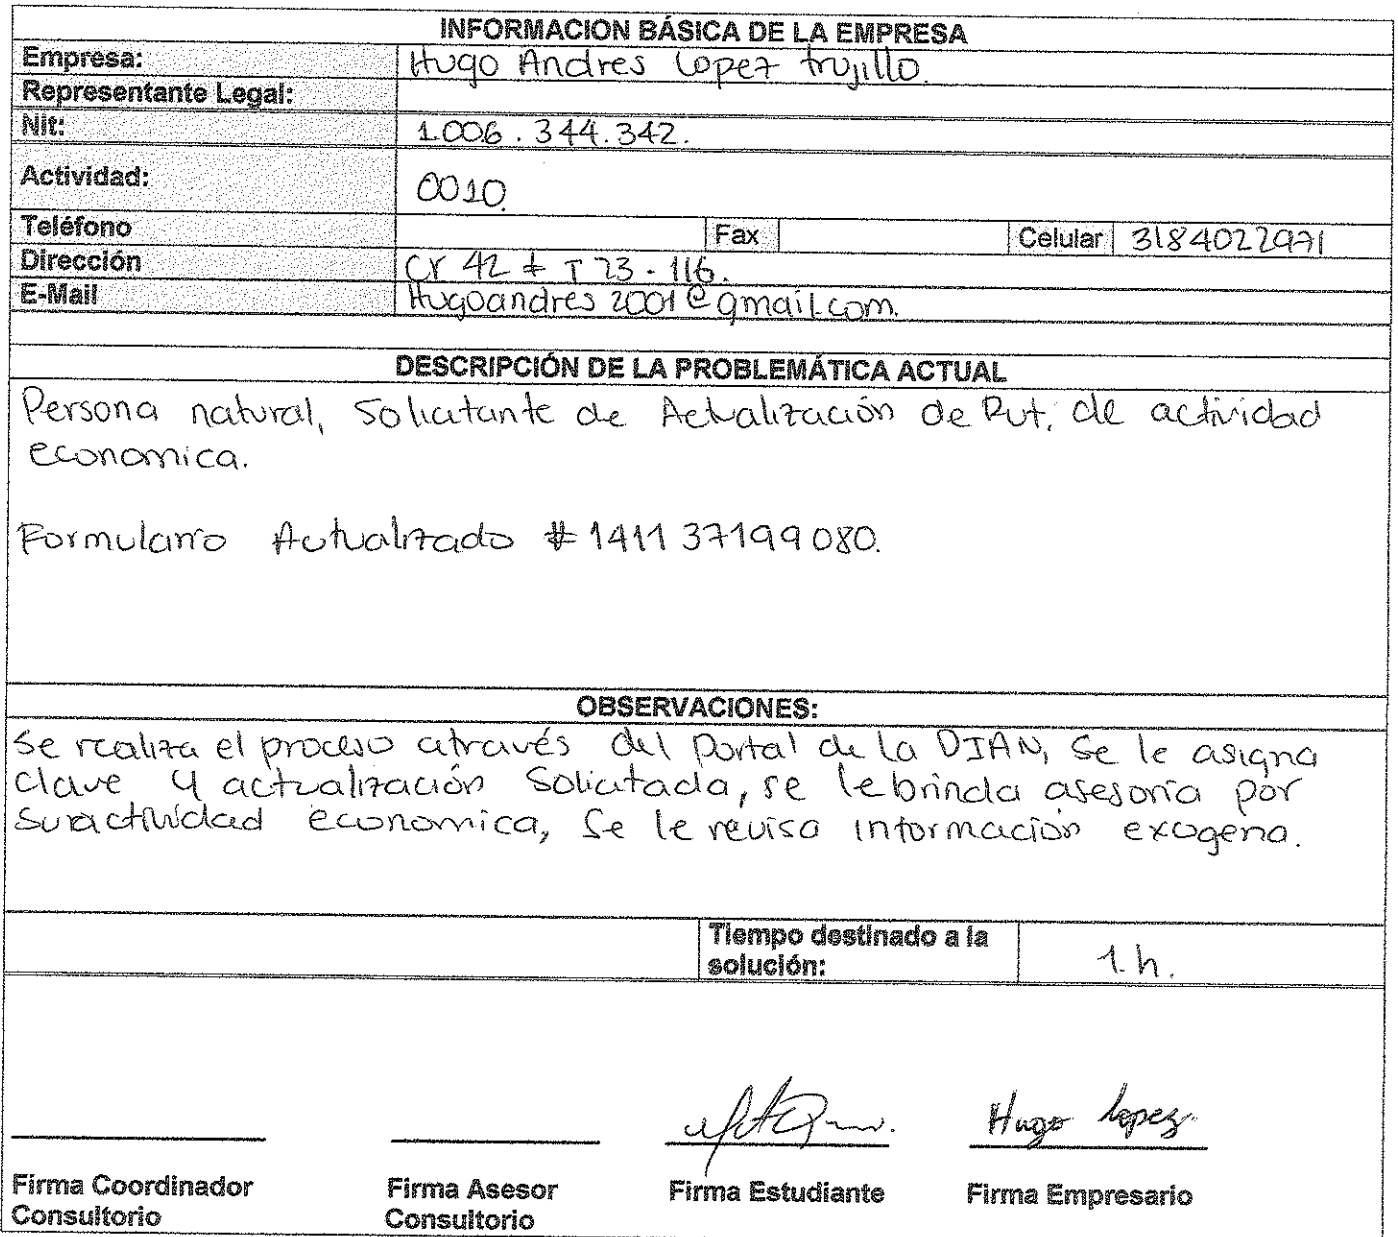 INFORMACION BÁSICA DE LA EMPRESA
Empresa: Hugo Andres Lopez trujillo.
Representante Legal:
Nit: 1.006.344.342.
Actividad: 0010
Teléfono Fax Celular 3184022971
Dirección Cr 42 # T 23-116.
E-Mail Hugoandres2001@gmail.com.
DESCRIPCIÓN DE LA PROBLEMÁTICA ACTUAL
Persona natural, Solicitante de Actualización de Rut. de actividad
economica.
Formulario Actualizado # 141137199080.
OBSERVACIONES:
Se realiza el proceso através del Portal de la DIAN, Se le asigna
Clave y actualización Solicitada, se le brinda asesoria por
su actividad economica, Se le revisa información exogena.
Tiempo destinado a la
solución: 1.h.
Hugo Lopez
Firma Coordinador
Consultorio
Firma Asesor
Consultorio
Firma Estudiante
Firma Empresario